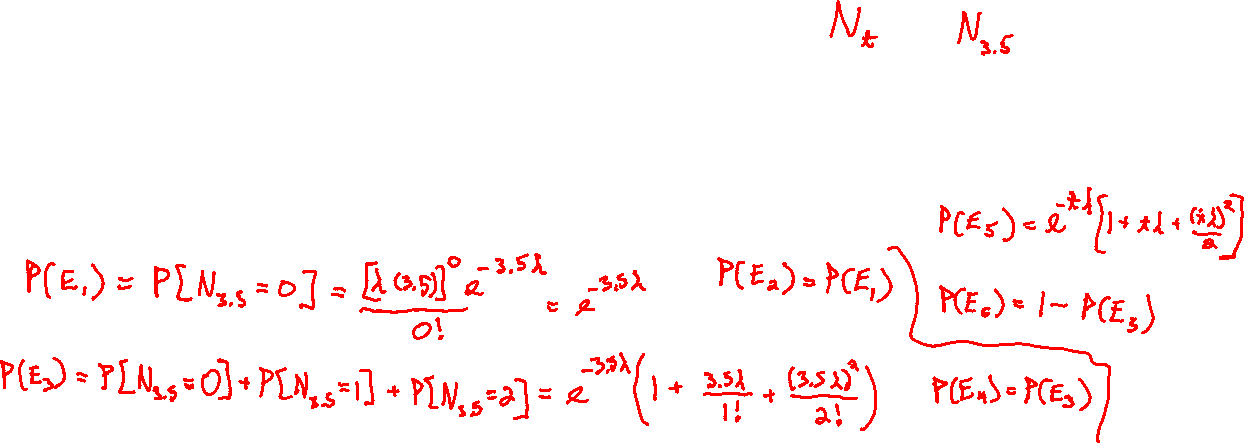 N_t N_{3.5}
P(E_5) = e^{-tλ}[1 + tλ + (tλ)^2/2]
P(E_1) = P[N_{3.5} = 0] = [λ(3.5)]^0 e^{-3.5λ}/0! = e^{-3.5λ} P(E_2) = P(E_1)
P(E_6) = 1 - P(E_5)
P(E_3) = P[N_{3.5} = 0] + P[N_{3.5} = 1] + P[N_{3.5} = 2] = e^{-3.5λ}(1 + 3.5λ/1! + (3.5λ)^2/2!) P(E_4) = P(E_3)